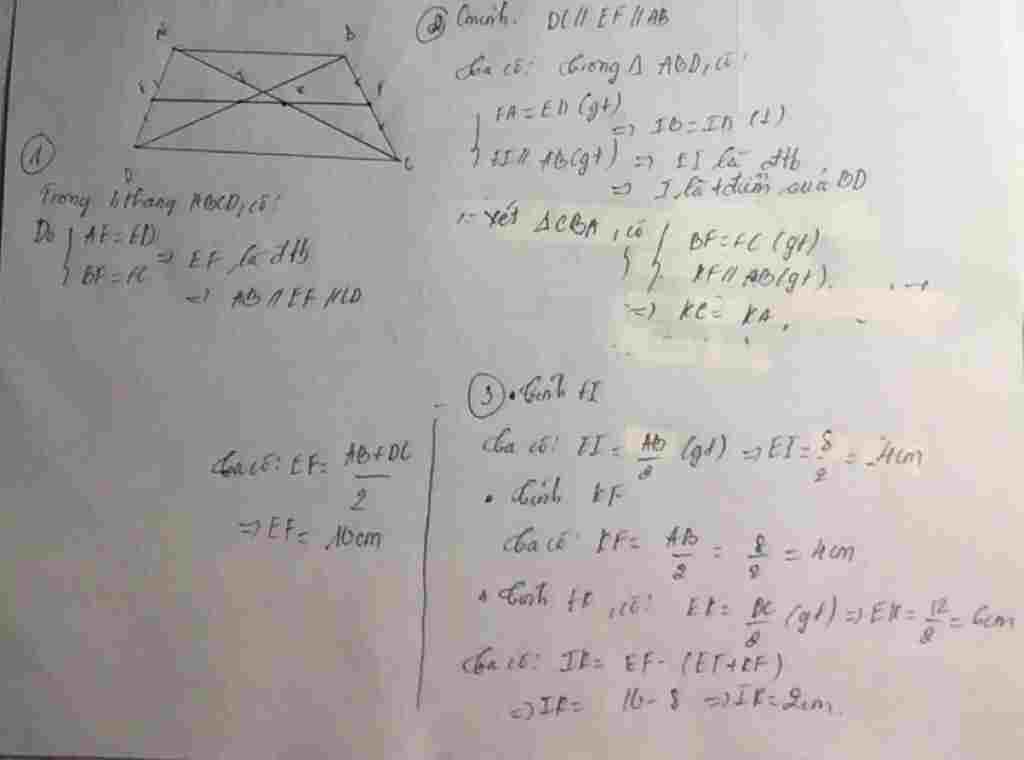 A
B
I
K
E
F
D
C
①
Trong hthang ABCD, có:
Do { AE = ED
BF = FC
=> EF là đtb
=> AB // EF // CD
② Cminh. DC // EF // AB
Ta có: trong Δ ABD, có:
EA = ED (gt)
EI // AB (gt)
=> IB = ID (1)
=> EI là đtb
=> I là tđiểm của BD
Xét Δ CBA, có
BF = FC (gt)
KF // AB (gt).
=> KC = KA.
Ta có: EF = AB + DC / 2
=> EF = 10cm
③ • Tính EI
Ta có: EI = AB / 2 (gt) => EI = 8 / 2 = 4cm
• Tính KF
Ta có: KF = AB / 2 = 8 / 2 = 4cm
• Tính EK, có: EK = DC / 2 (gt) => EK = 12 / 2 = 6cm
Ta có: IK = EF - (EI + KF)
=> IK = 10 - 8 => IK = 2cm.